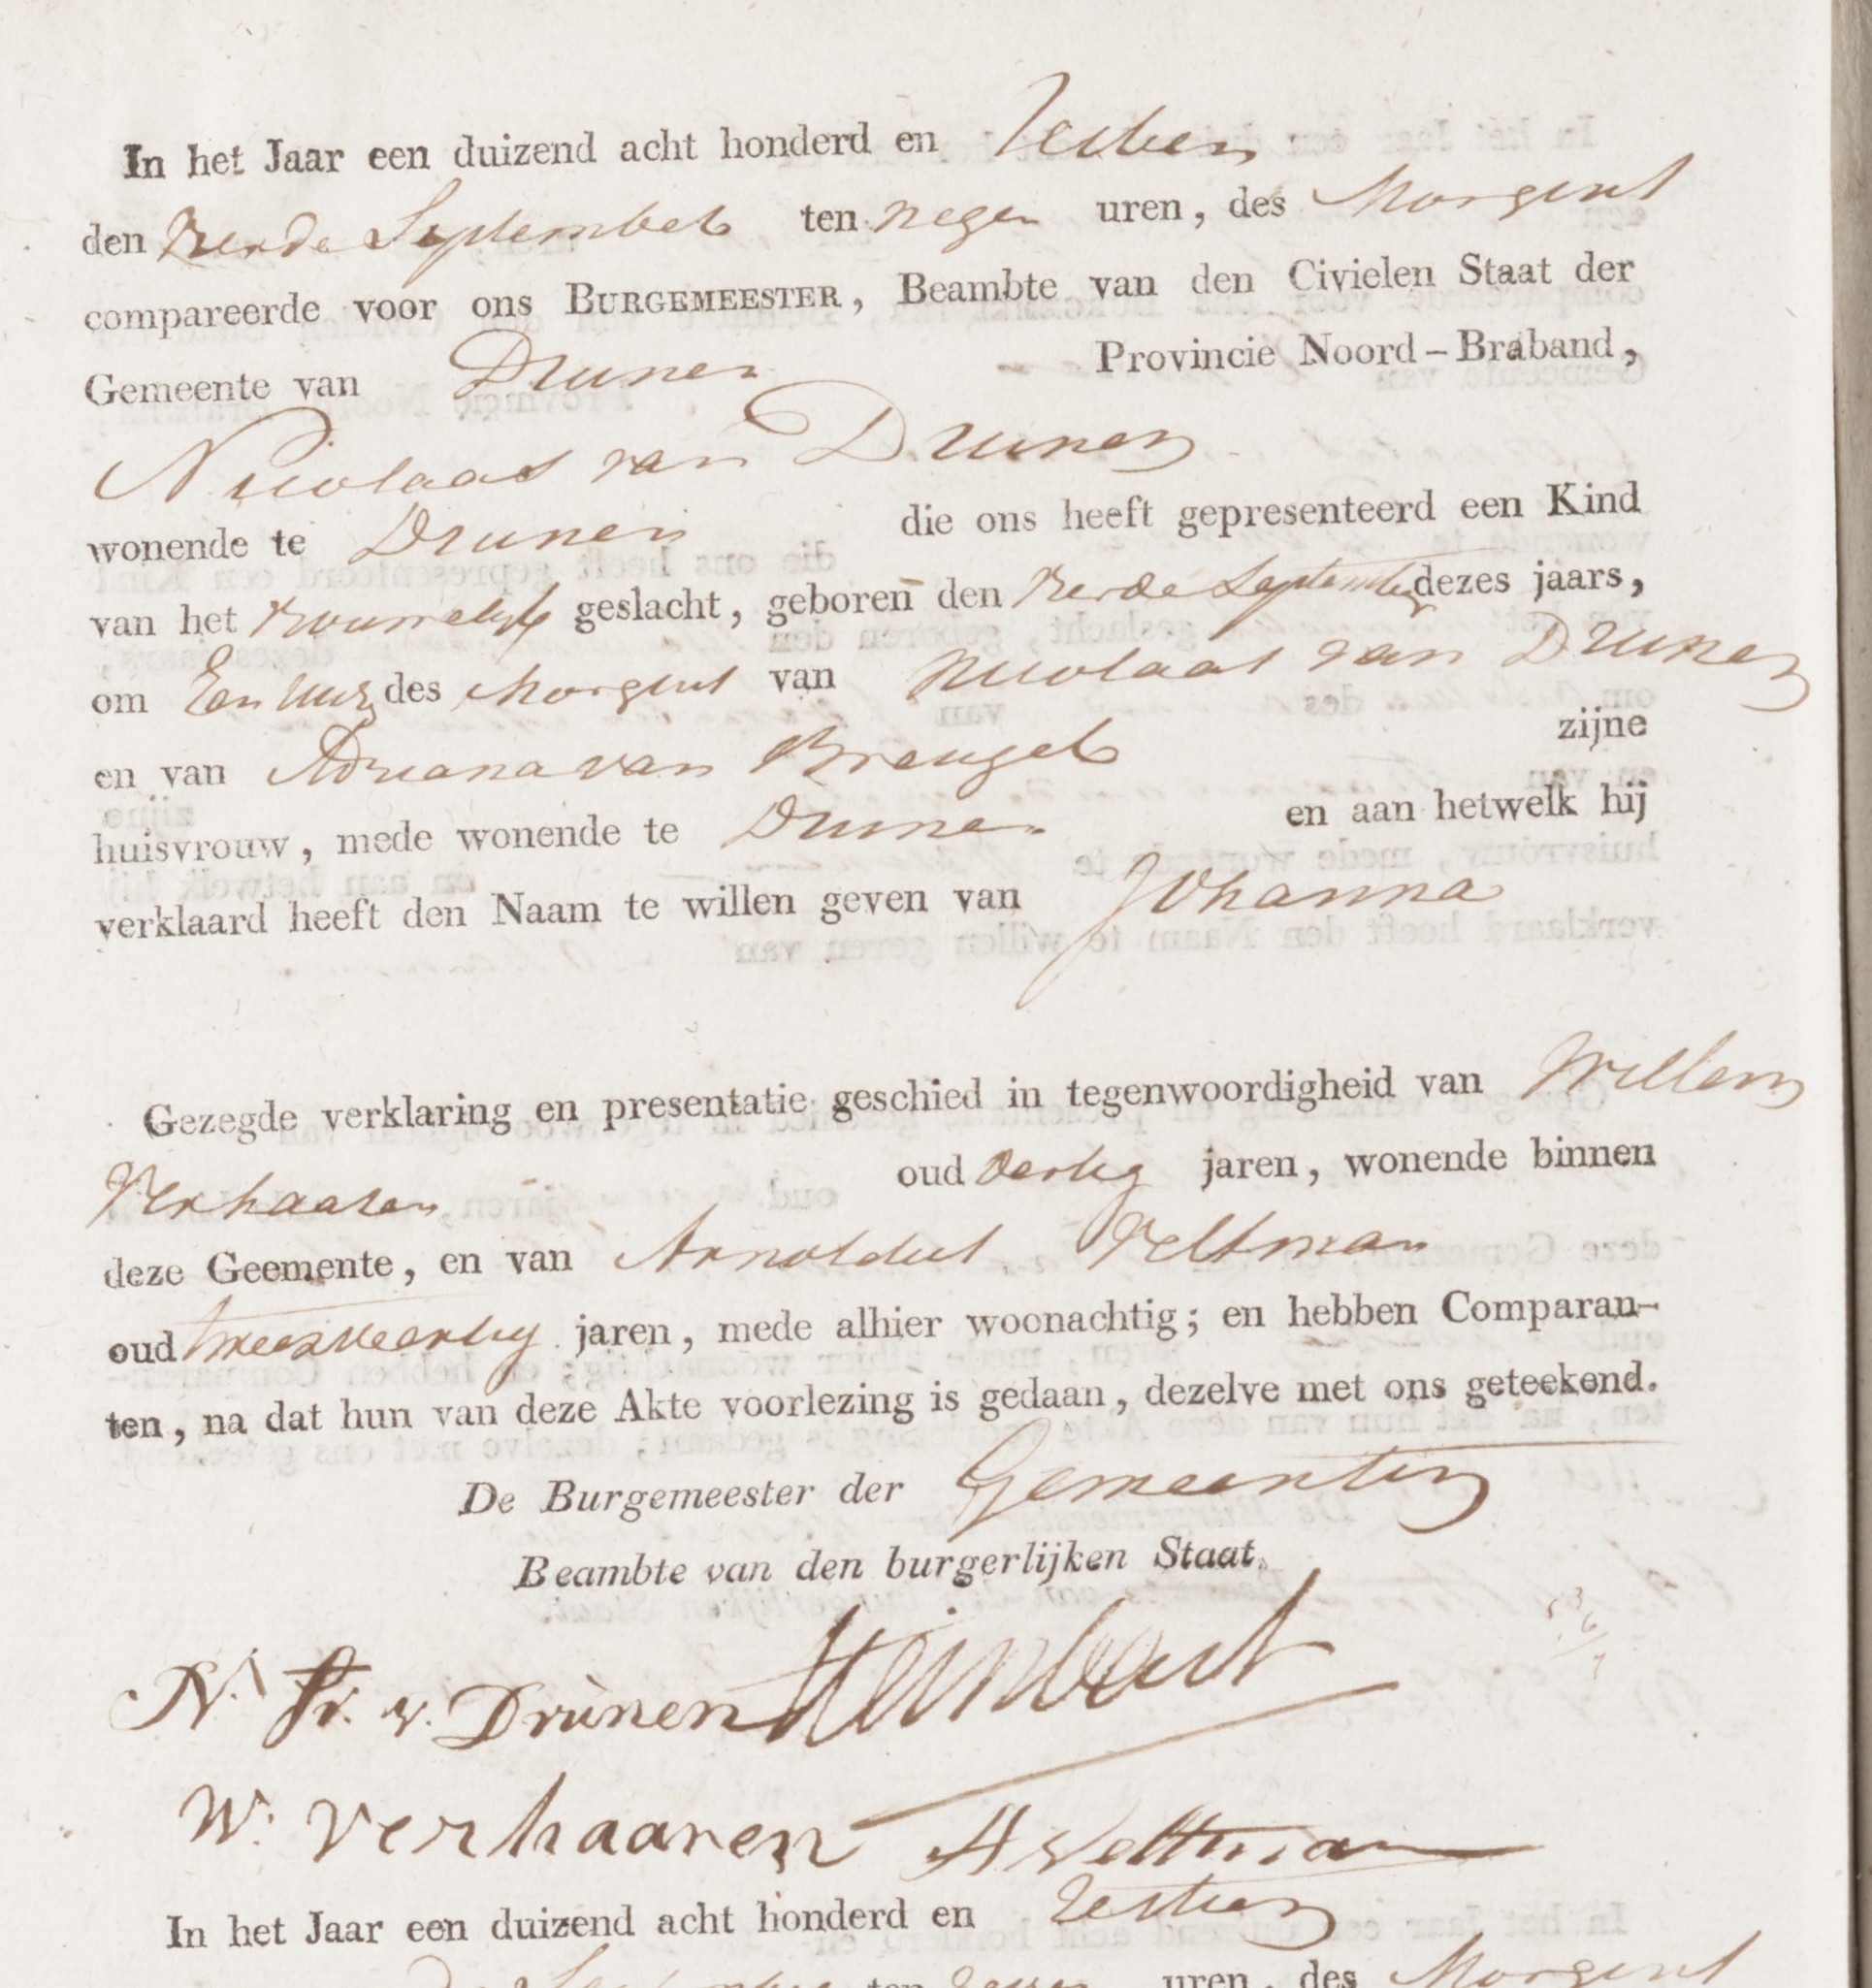 In het Jaar een duizend acht honderd en Zestien
den Vierde September ten negen uren, des Morgens
compareerde voor ons BURGEMEESTER, Beambte van den Civielen Staat der
Gemeente van Drunen Provincie Noord-Braband,
Nicolaas van Drunen
wonende te Drunen die ons heeft gepresenteerd een Kind
van het vrouwelyk geslacht, geboren den Vierde September dezes jaars,
om Een uur des Morgens van Nicolaas van Drunen
en van Adriana van Breugel zijne
huisvrouw, mede wonende te Drunen en aan hetwelk hij
verklaard heeft den Naam te willen geven van Johanna
Gezegde verklaring en presentatie geschied in tegenwoordigheid van Willem
Verhaaren oud dertig jaren, wonende binnen
deze Geemente, en van Arnoldus Veltman
oud tweeenveertig jaren, mede alhier woonachtig; en hebben Comparan-
ten, na dat hun van deze Akte voorlezing is gedaan, dezelve met ons geteekend.
De Burgemeester der Gemeente
Beambte van den burgerlijken Staat.
N. Fr. v. Drunen
W. Verhaaren A Velttman
In het Jaar een duizend acht honderd en Zestien
ten uren, des Morgens